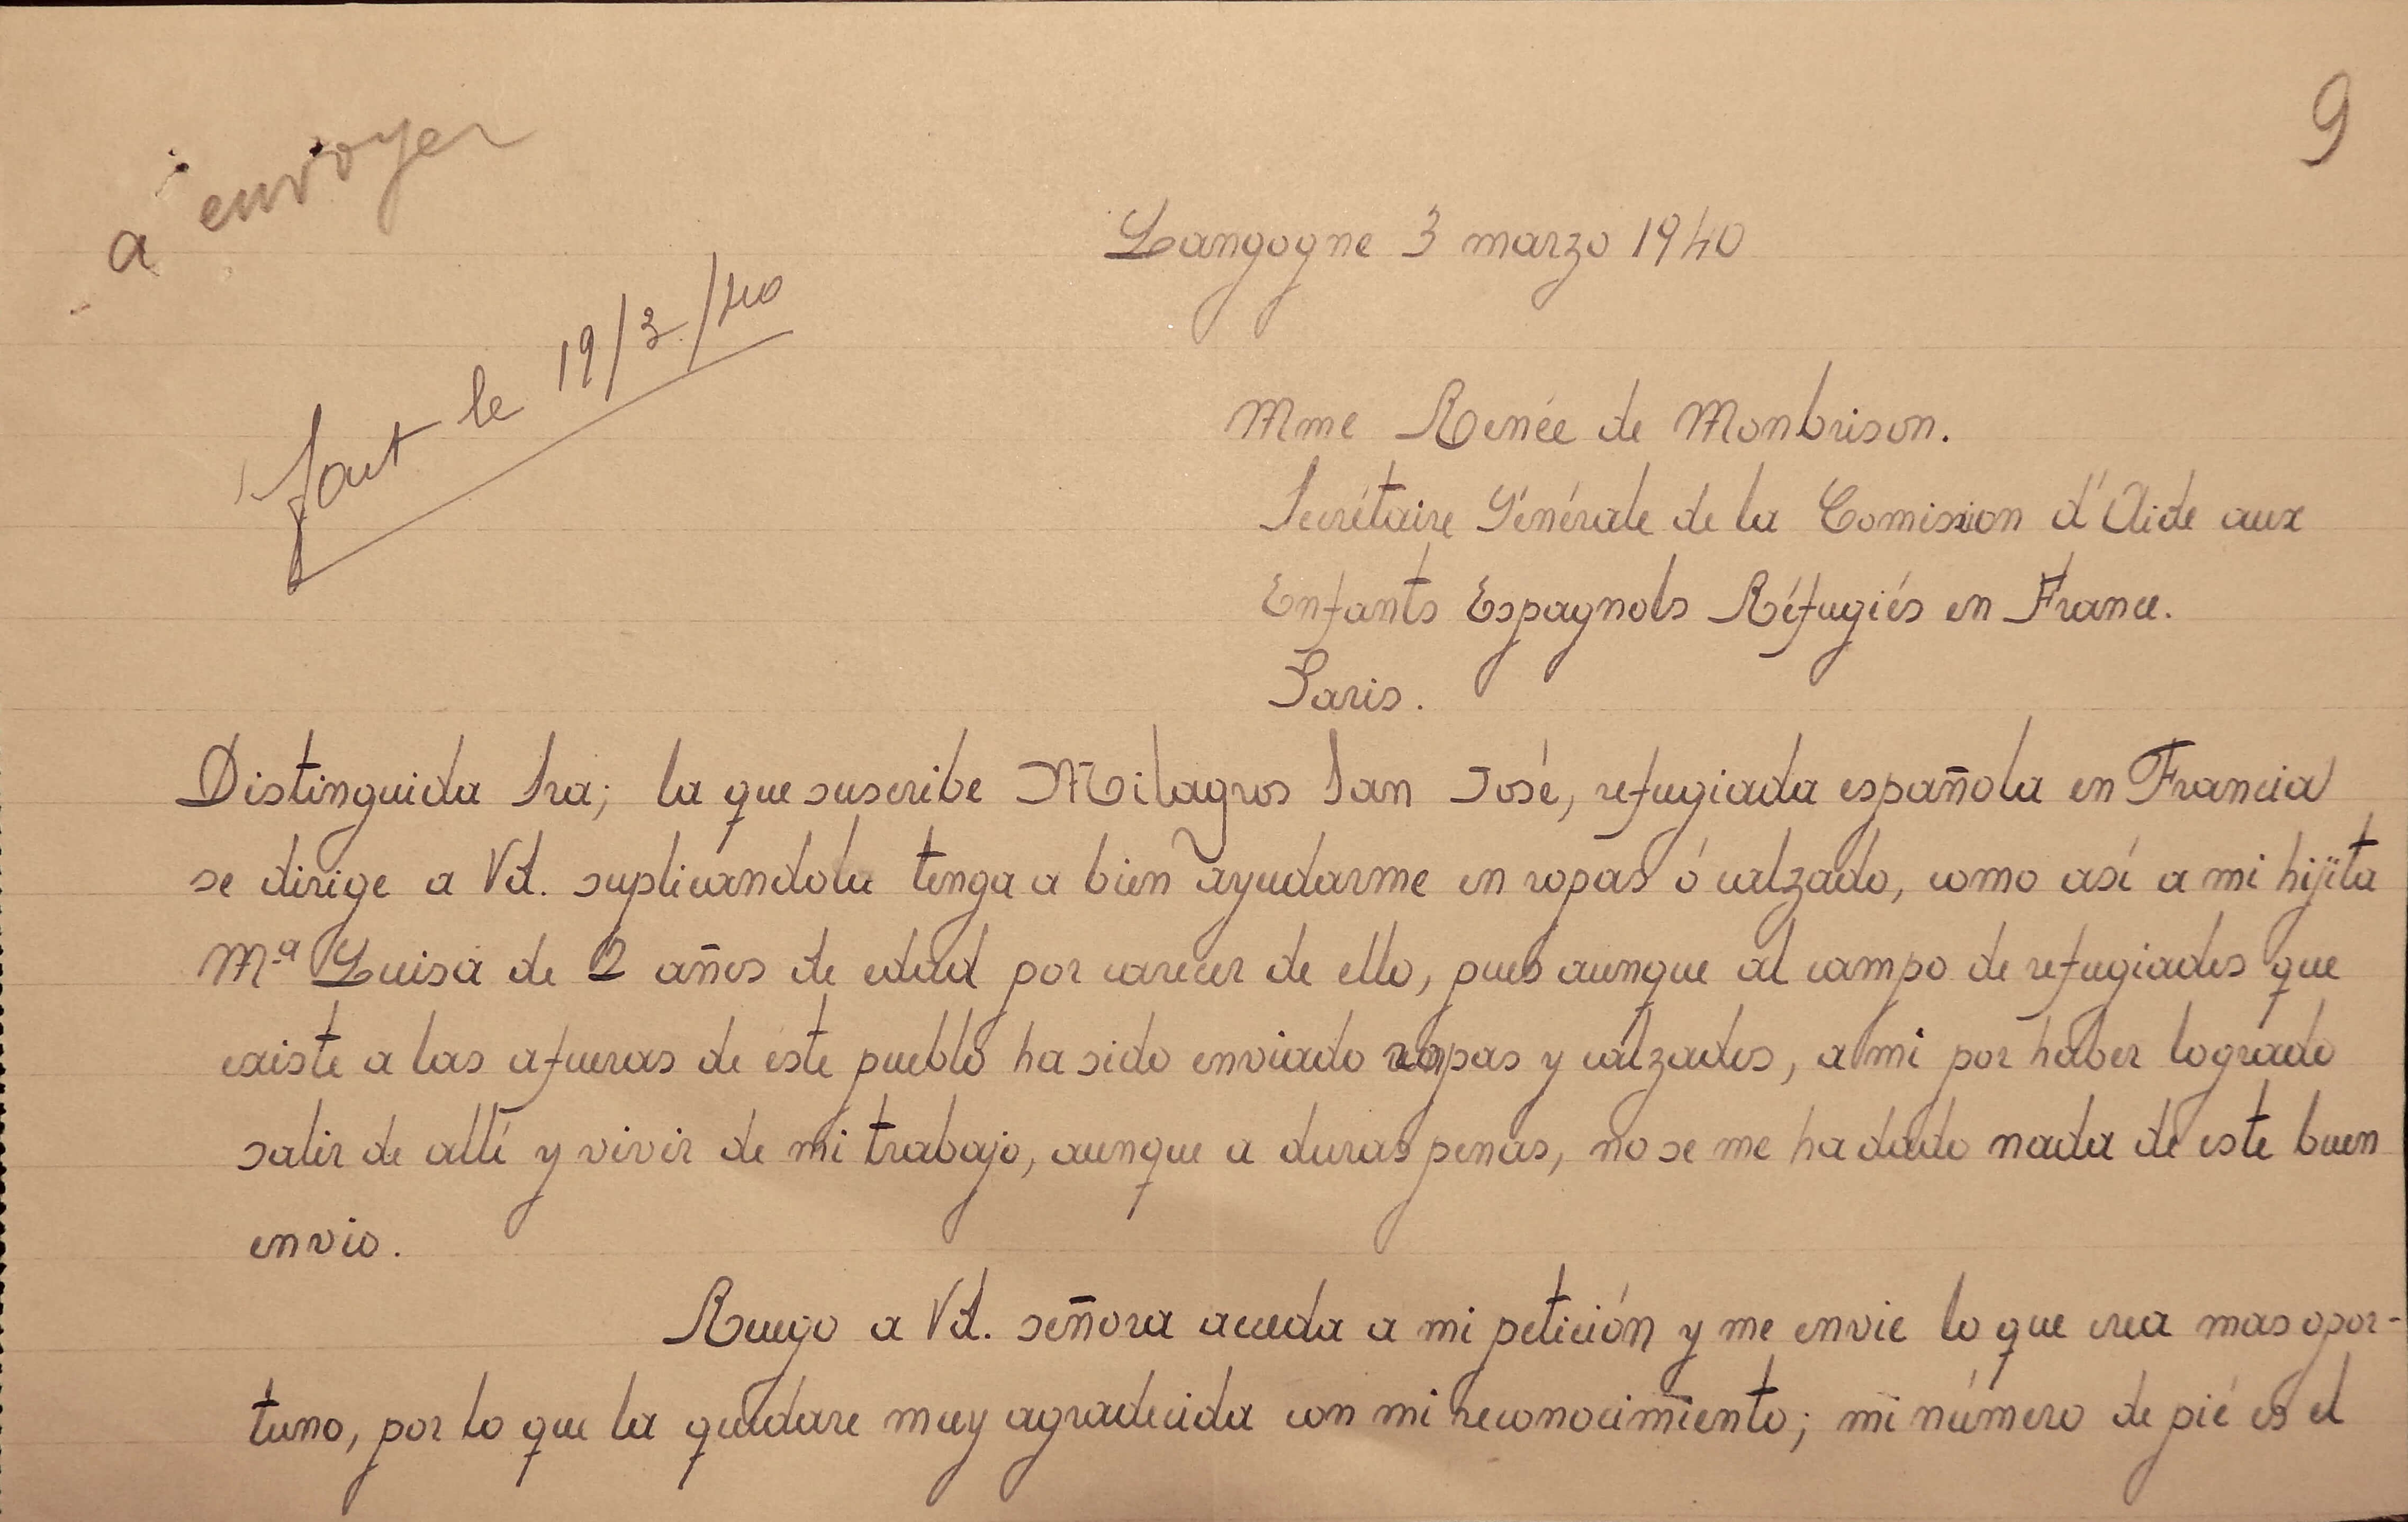 9
a envoyer
Langogne 3 marzo 1940
fait le 19/3/40
Mme Renée de Monbrison.
Secrétaire Générale de la Comission d'Aide aux
Enfants Espagnols Réfugiés en France.
Paris.
Distinguida Sra; la que suscribe Milagros San José, refugiada española en Francia
se dirige a Vd. suplicandola tenga a bien ayudarme en ropas ó calzado, como así a mi hijita
Mª Luisa de 2 años de edad por carecer de ello, pues aunque al campo de refugiados que
existe a las afueras de éste pueblo ha sido enviado ropas y calzados, a mi por haber logrado
salir de allí y vivir de mi trabajo, aunque a duras penas, no se me ha dado nada de este buen
envio.
Ruego a Vd. señora acceda a mi petición y me envie lo que crea mas opor-
tuno, por lo que la quedare muy agradecida con mi reconocimiento; mi número de pié es el